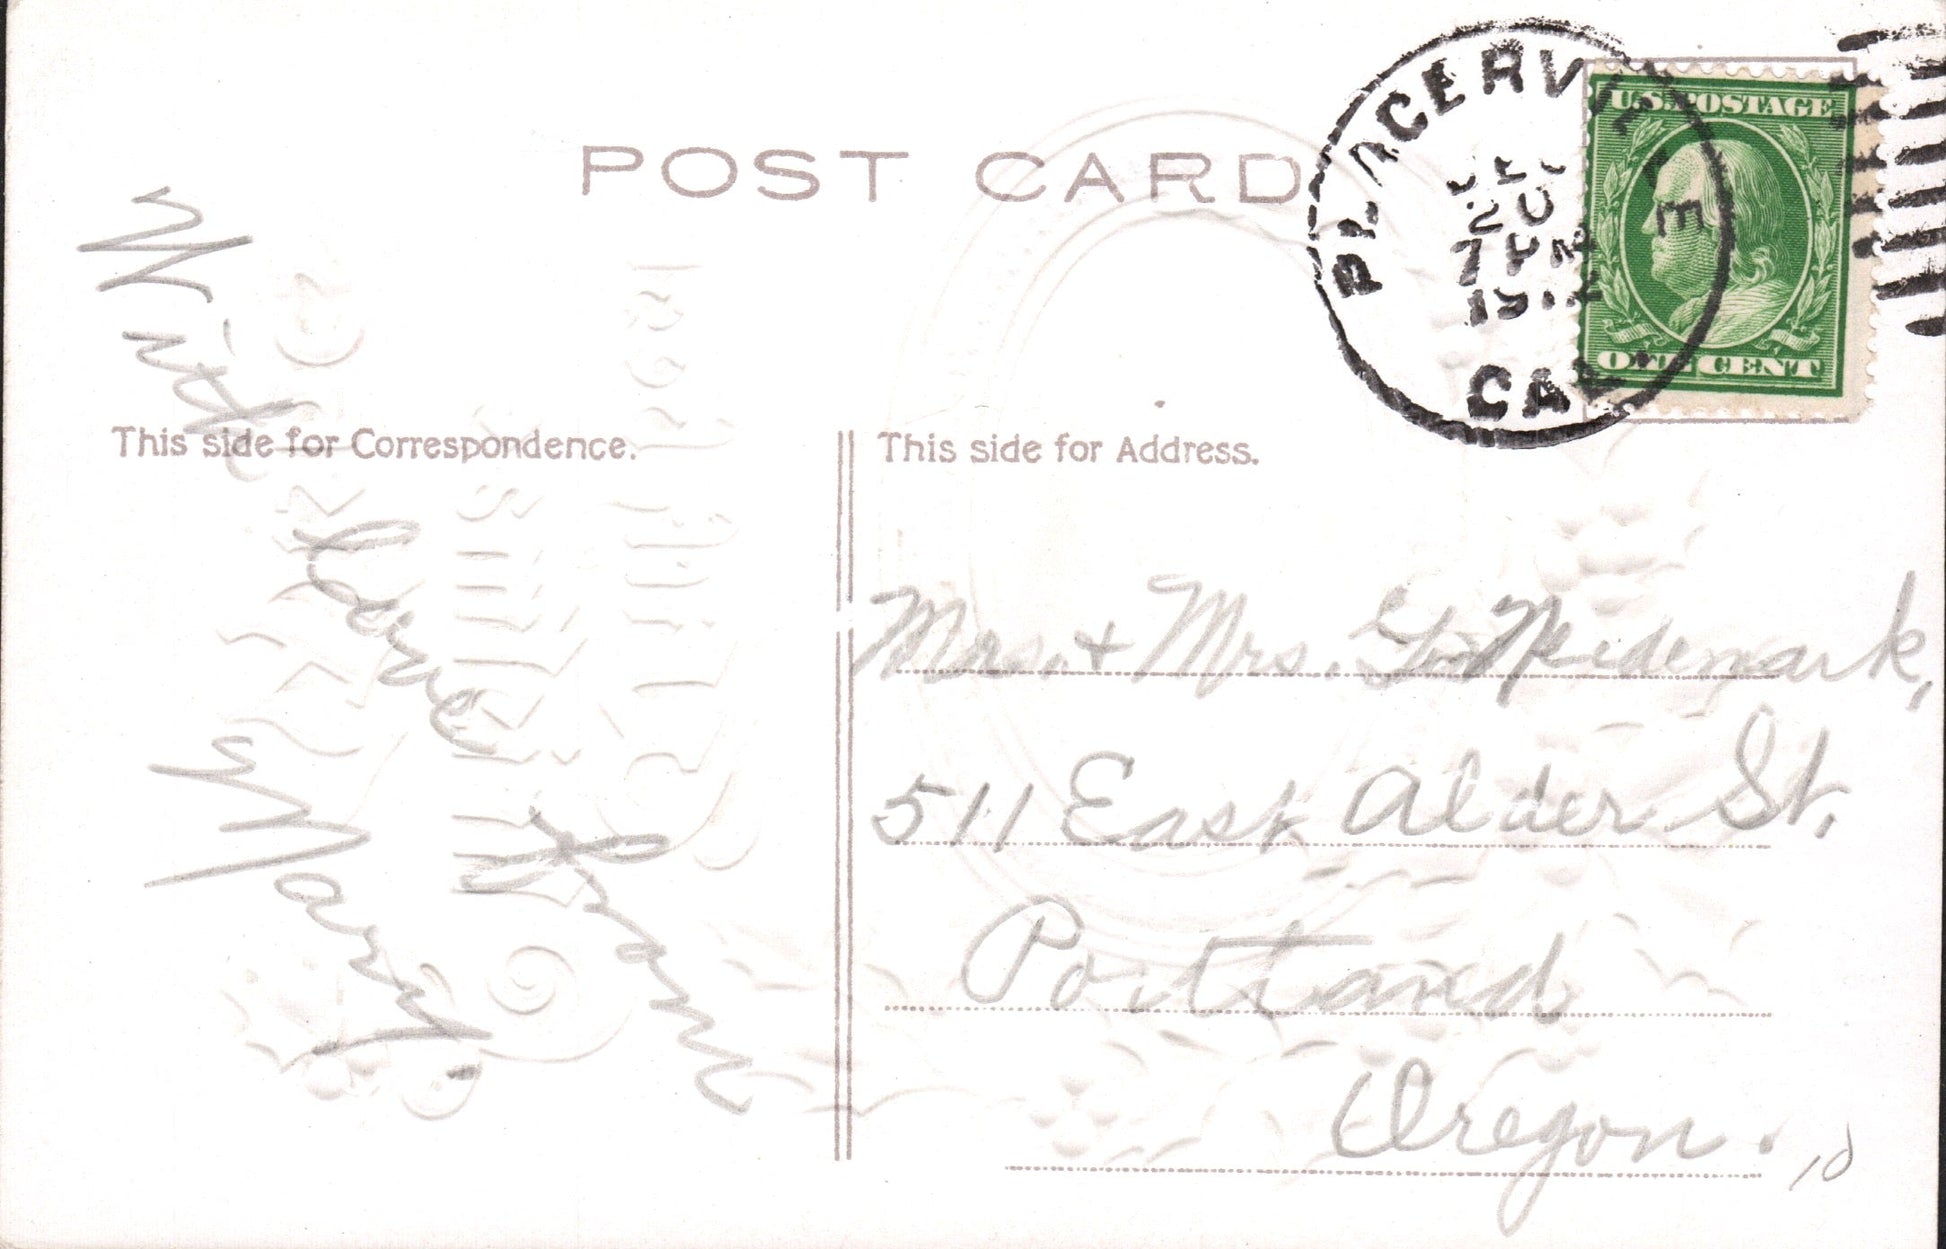 POST CARD
PLACERVILLE
20
7 PM
1912
CAL.
U.S. POSTAGE
ONE CENT
This side for Correspondence.
This side for Address.
With love
from
Mary.
Mrs. & Mrs. Widemark,
511 East Alder St,
Portland
Oregon.
10